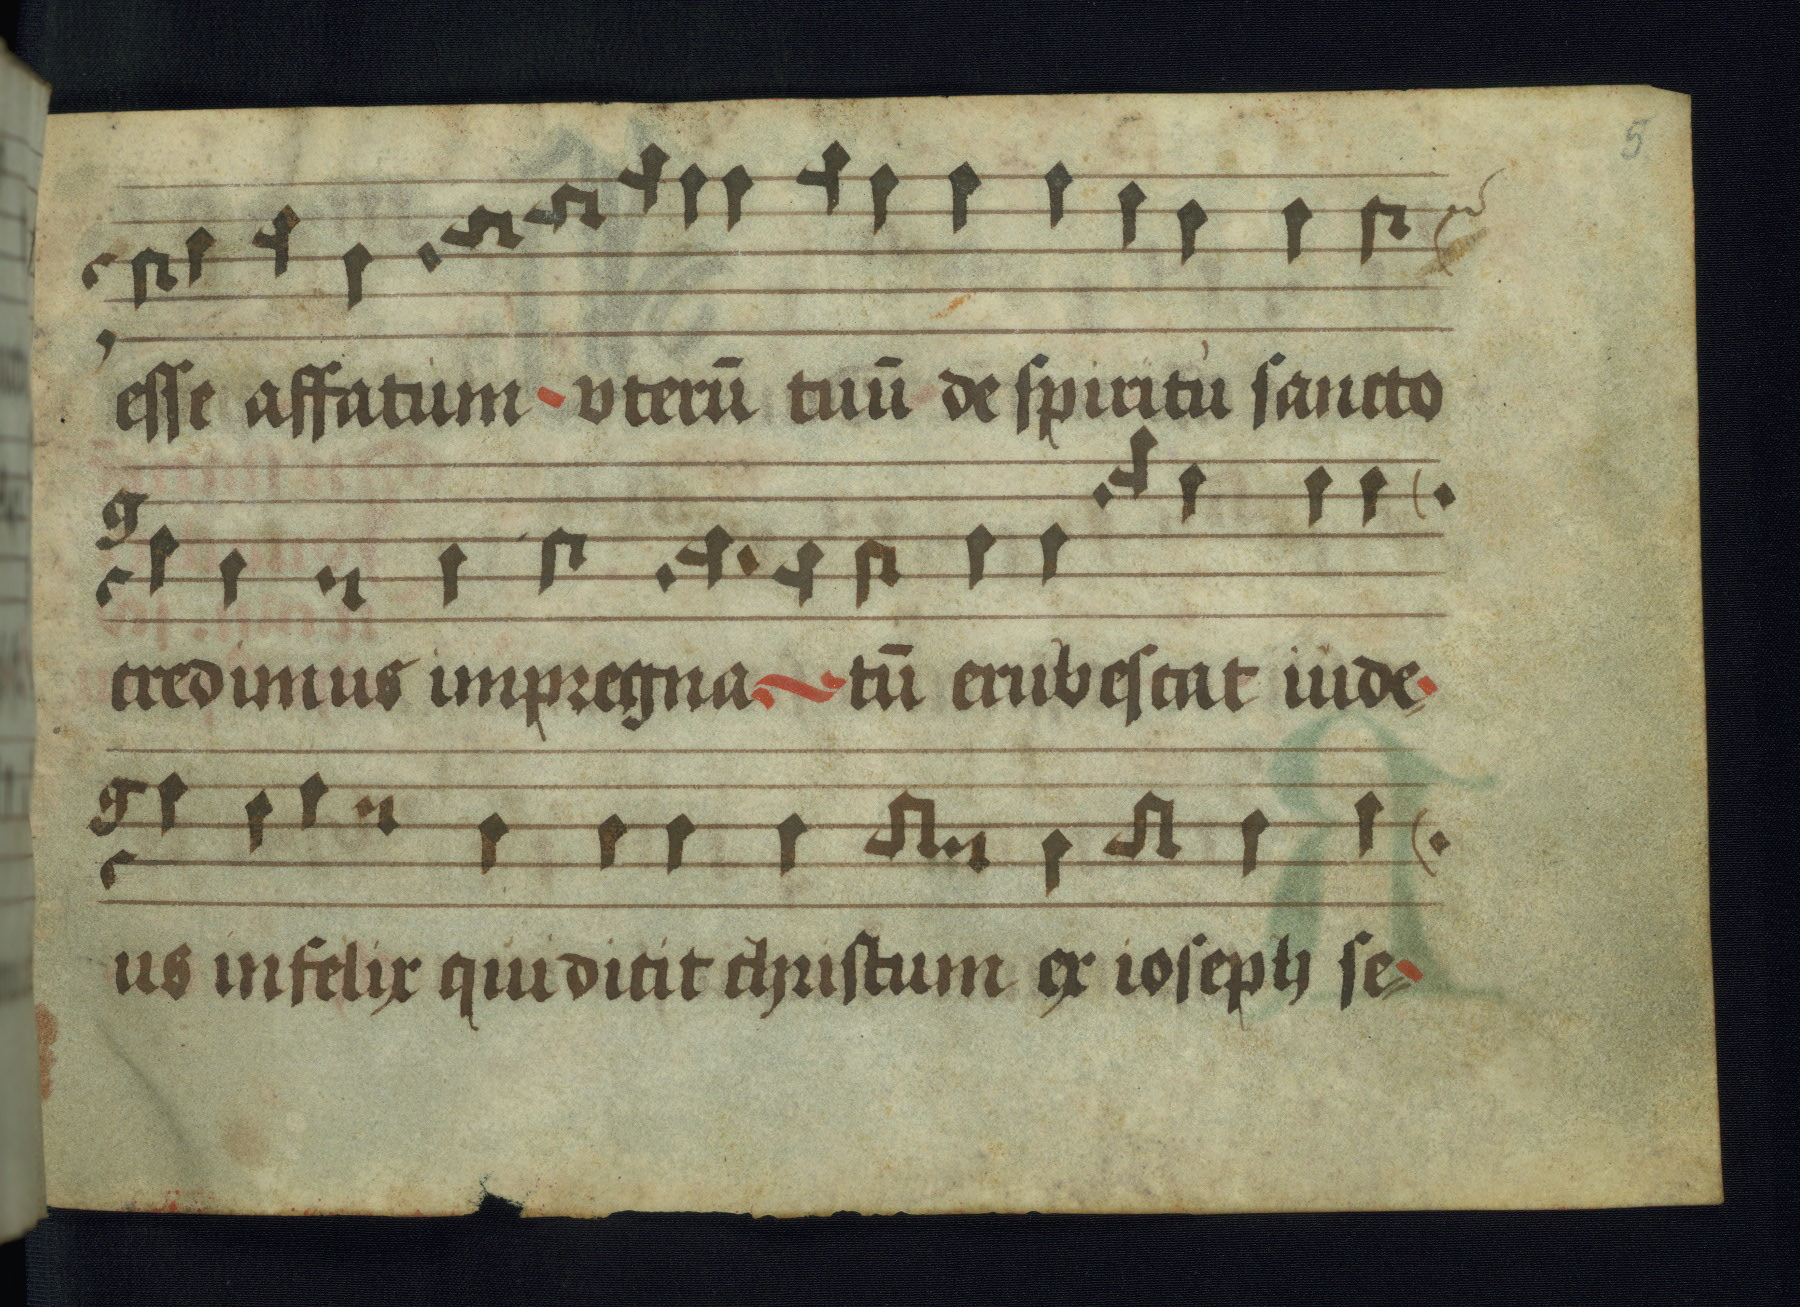 5
esse affatum vterū tuū de spiritu sancto
credimus impregna~tū erubescat iude
us infelix qui dicit christum ex ioseph se